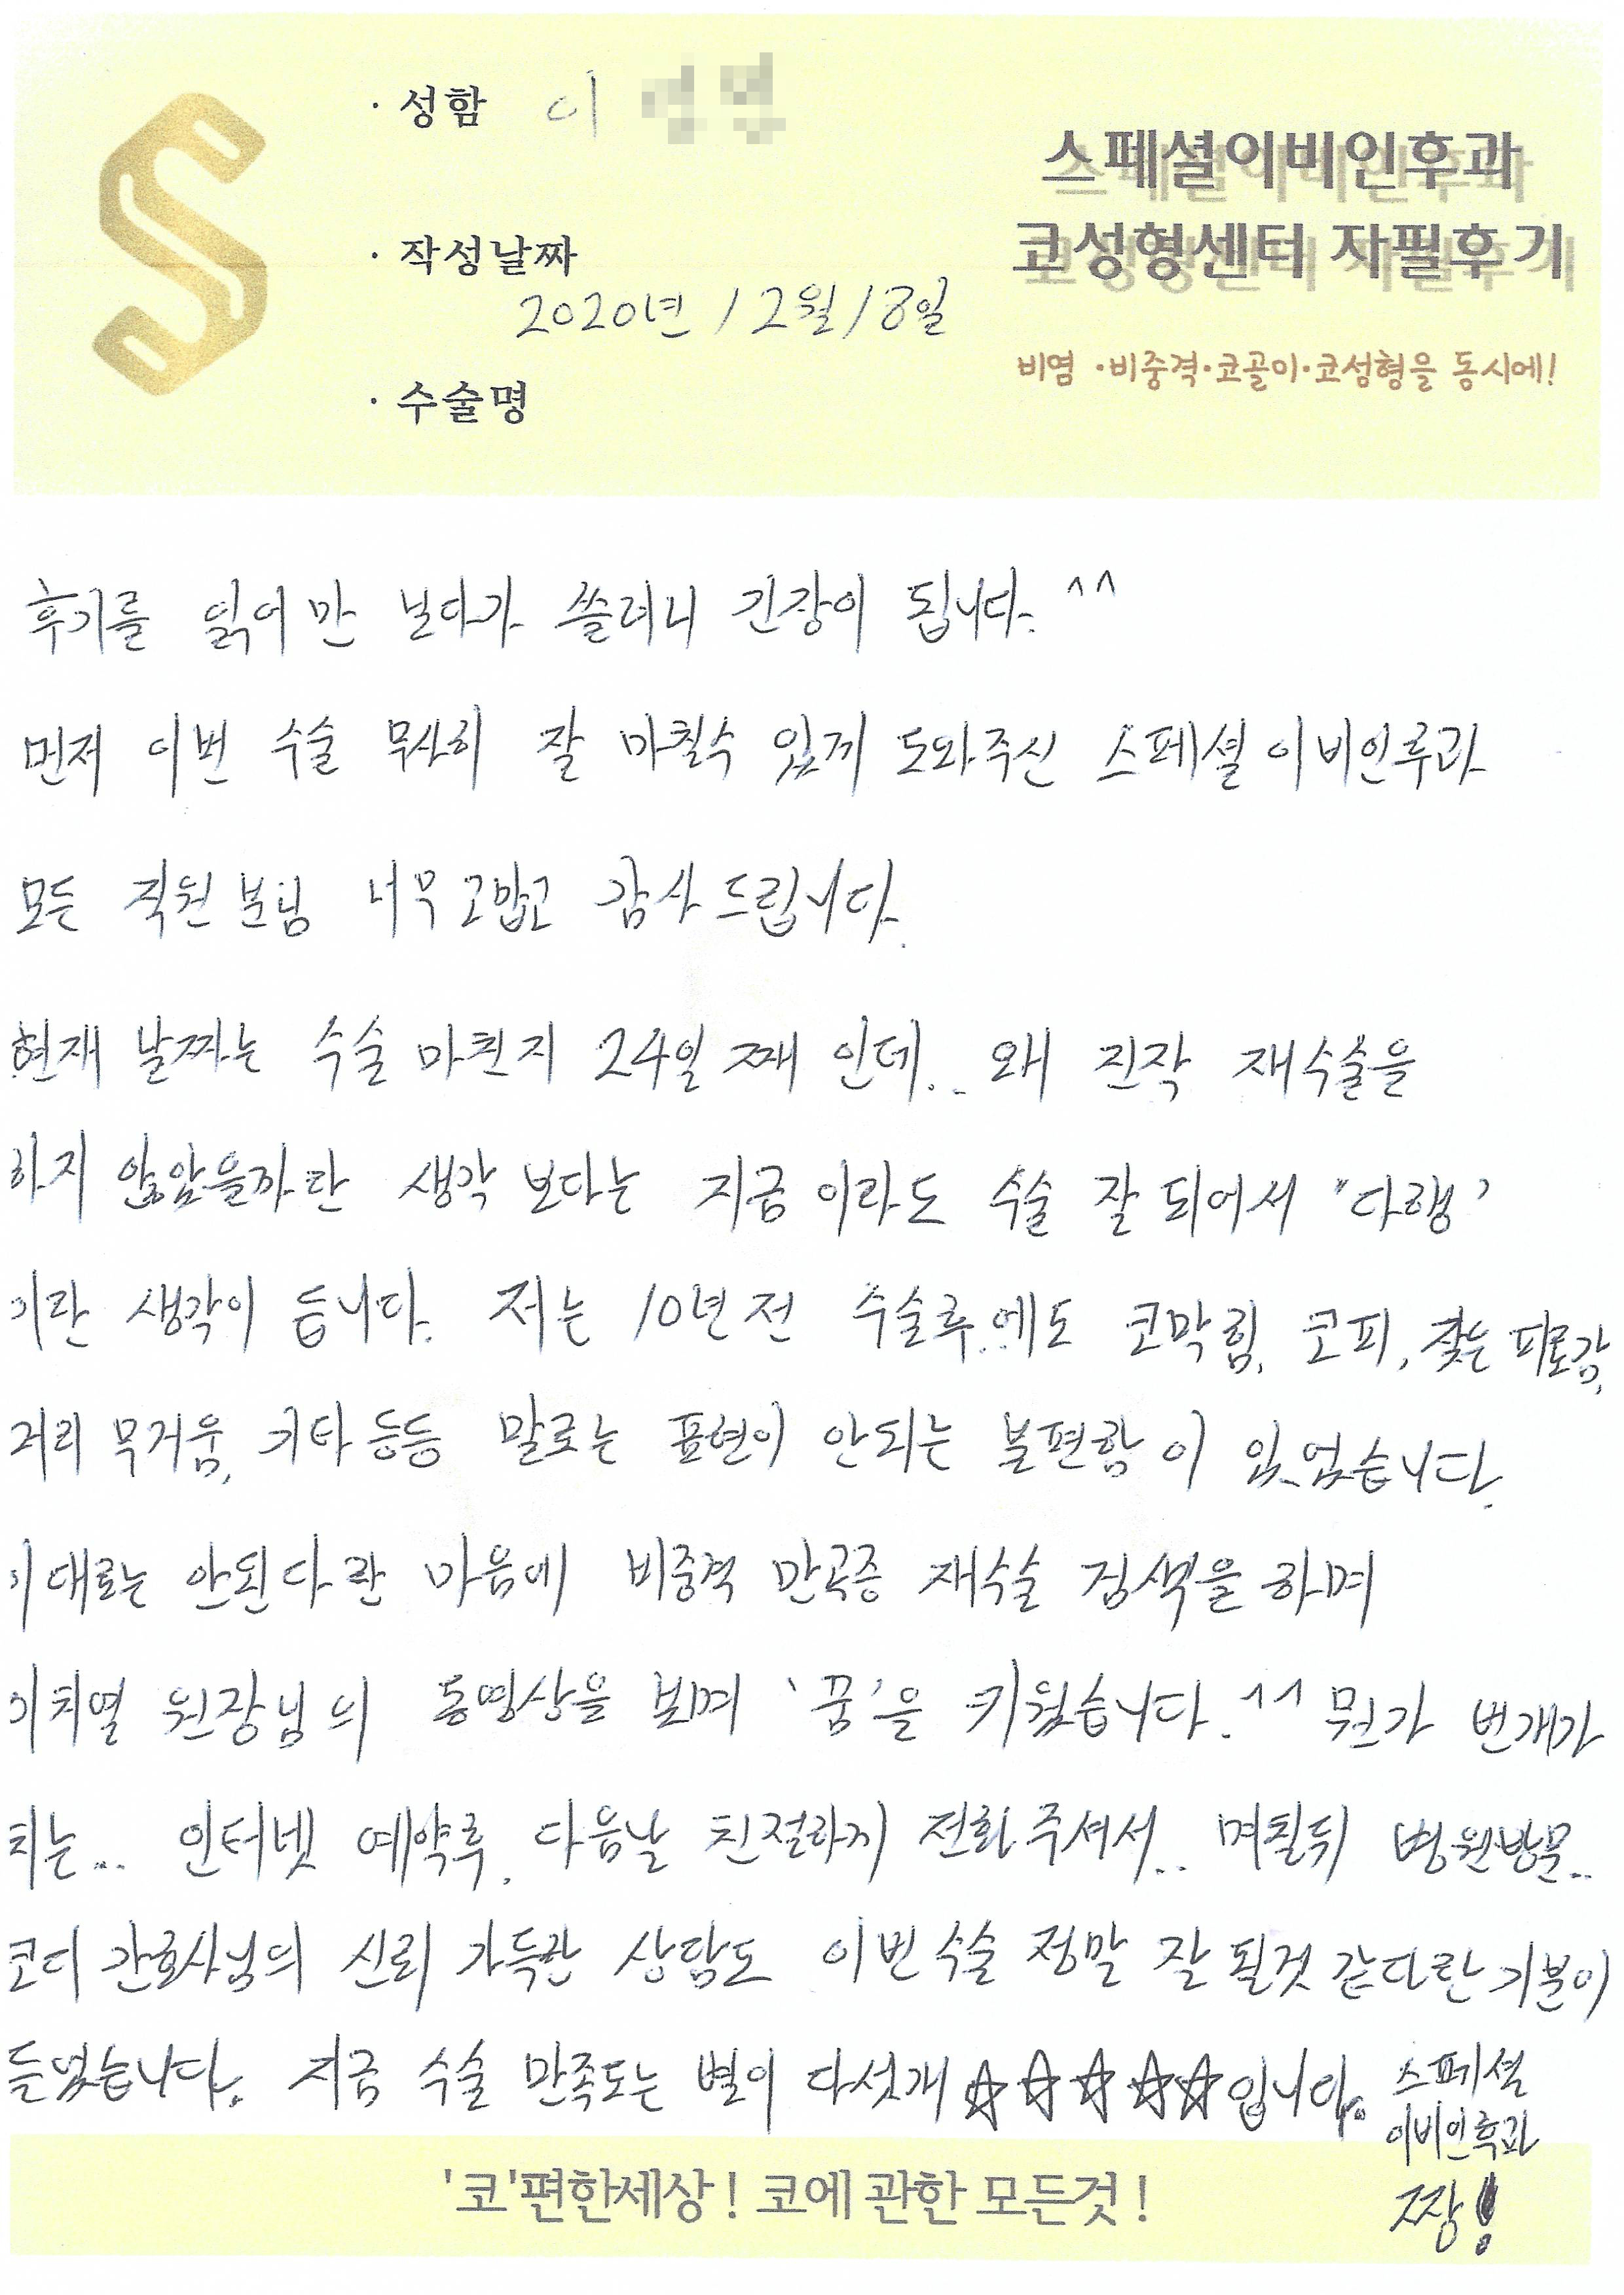 · 성함 이
스페셜이비인후과
코성형센터 자필후기
· 작성날짜
2020년 12월 18일
비염 ·비중격·코골이·코성형을 동시에!
· 수술명
후기를 읽어만 보다가 쓸려니 긴장이 됩니다. ^^
먼저 이번 수술 무사히 잘 마칠수 있게 도와주신 스페셜 이비인후과
모든 직원분님 너무 고맙고 감사 드립니다.
현재 날짜는 수술 마친지 24일 째 인데.. 왜 진작 재수술을
하지 않았을까란 생각 보다는 지금 이라도 수술 잘 되어서 '다행'
이란 생각이 듭니다. 저는 10년전 수술후..에도 코막힘, 코피, 잦는 피로감,
머리 무거움, 기타등등 말로는 표현이 안되는 불편함이 있었습니다.
이대로는 안된다란 마음에 비중격 만곡증 재수술 검색을 하며
이치열 원장님의 동영상을 보며 '꿈'을 키웠습니다.^^ 뭔가 번개가
치는... 인터넷 예약후. 다음날 친절하게 전화주셔서.. 며칠뒤 병원방문..
코디 간호사님의 신뢰 가득한 상담도 이번 수술 정말 잘 될것 같다란 기분이
들었습니다. 지금 수술 만족도는 별이 다섯개 ☆☆☆☆☆입니다. 스페셜
이비인후과
짱!
'코'편한세상! 코에 관한 모든것!